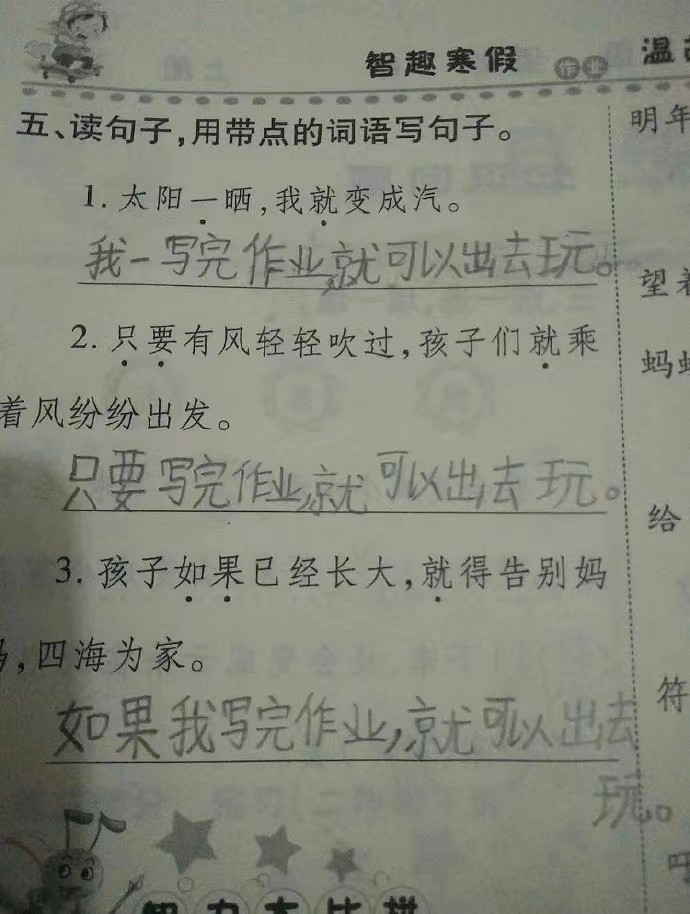 智趣寒假 作业
五、读句子，用带点的词语写句子。
1. 太阳一晒，我就变成汽。
我一写完作业,就可以出去玩。
2. 只要有风轻轻吹过，孩子们就乘
着风纷纷出发。
只要写完作业,就可以出去玩。
3. 孩子如果已经长大，就得告别妈
，四海为家。
如果我写完作业,就可以出去
玩。
明年
望着
给
符